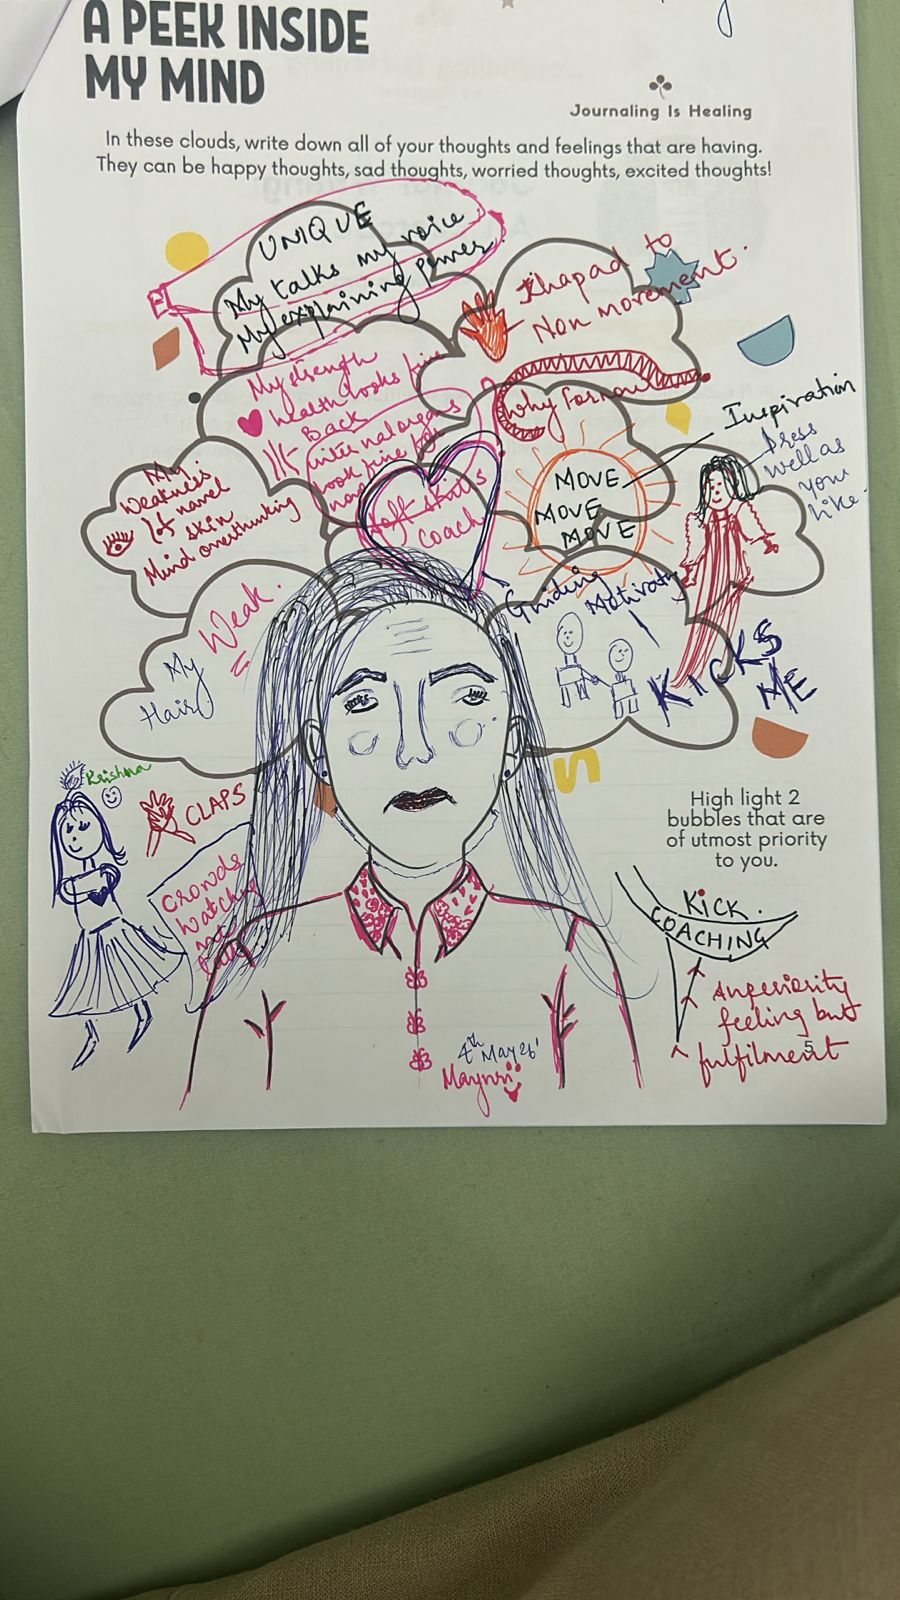 A PEEK INSIDE
MY MIND
Journaling Is Healing
In these clouds, write down all of your thoughts and feelings that are having.
They can be happy thoughts, sad thoughts, worried thoughts, excited thoughts!
UNIQUE
My talks my voice
My explaining power
Thapad to
Non movement.
My strength
health looks fine
Back
internal organs
look fine for
now
Why
Inspiration
Dress
well as
you
like.
My
Weakness
skin
Mind overthinking
Soft skills
Coach
MOVE
MOVE
MOVE
Guiding
Motivatg
KICKS
ME
Weak.
My
Hair
Krishna
CLAPS
Crowds
Watching
High light 2
bubbles that are
of utmost priority
to you.
KICK.
COACHING
feeling but
fulfilment
5
4th May 26'